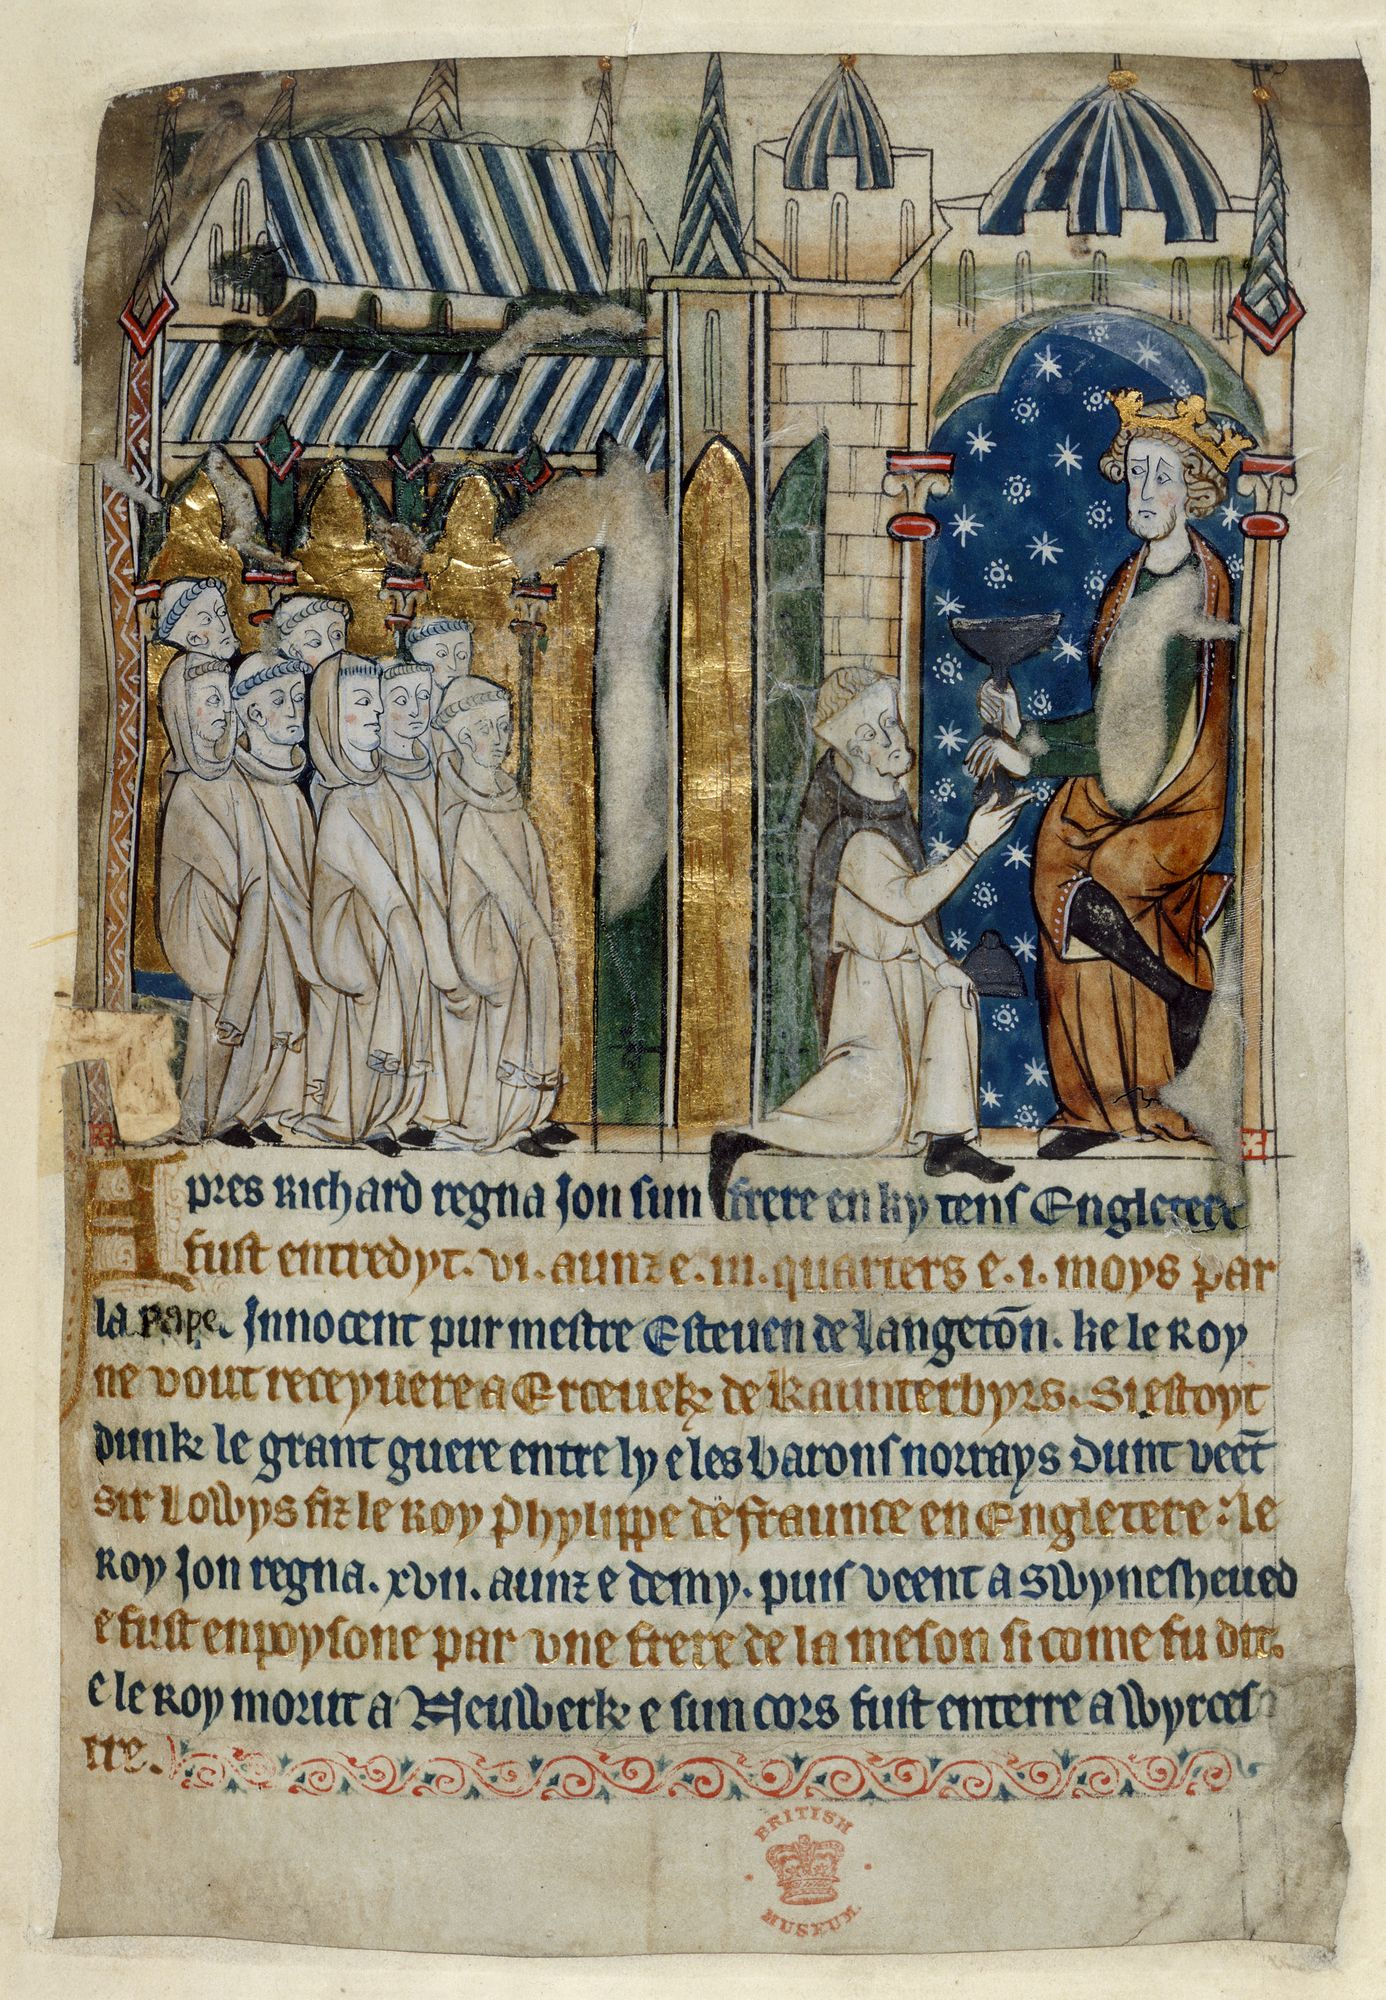 Apres Richard regna Jon sun frere en ky tens Engletere
fust entredyt. vi. aunz e. iii. quarters e. i. moys par
la pape. Innocent pur mestre Esteven de Langetōn. ke le Roy
ne vout receyvere a Erceveke de Kaunterbyrs. Si estoyt
dunk le grant guere entre ly e les barons norrays dunt veēt
sir Lowys fiz le Roy Phylippe de fraunce en Engletere : le
Roy Jon regna. xvii. aunz e demy. puis veent a Swynesheued
e fust enpoysone par une frere de la meson si come fu dit.
e le Roy morut a Neuwerk e sun cors fust enterre a Wyrces
tre.
BRITISH
MUSEUM